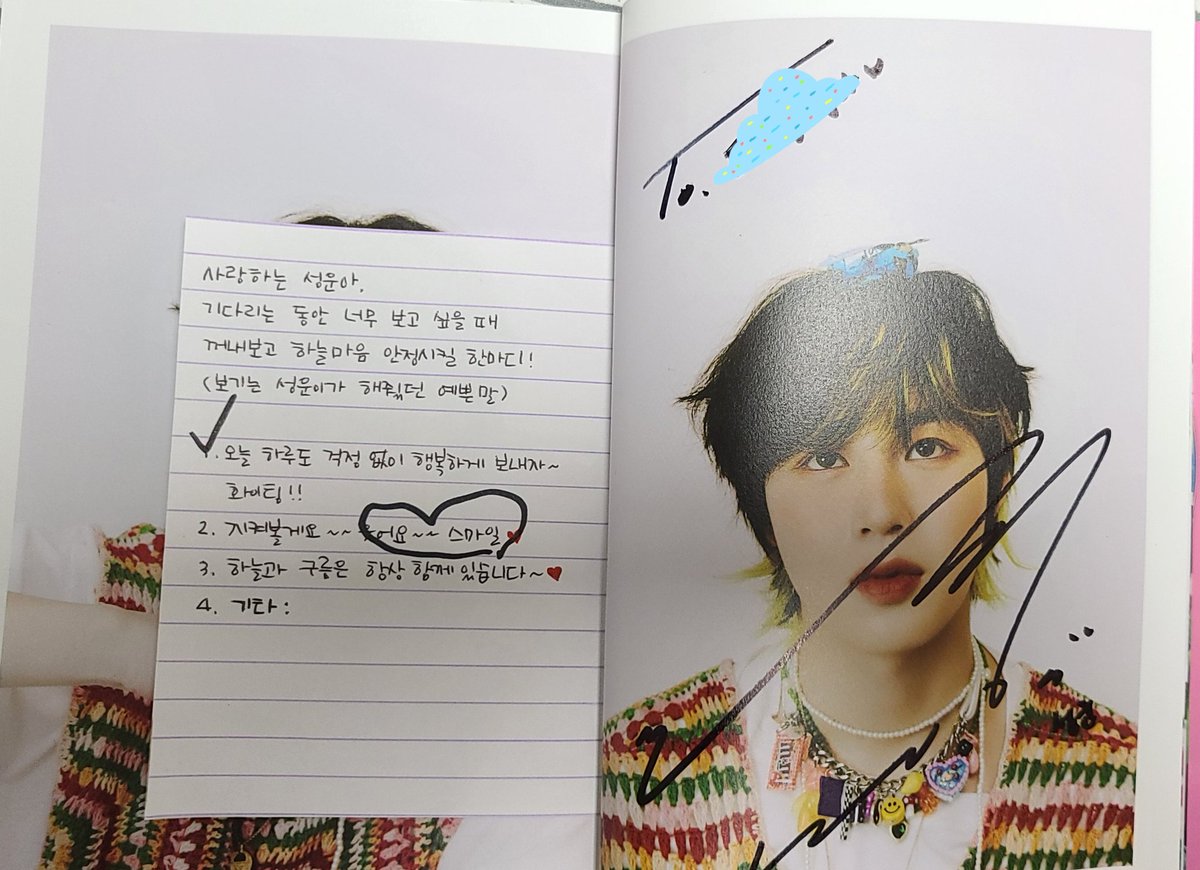 사랑하는 성운아,
기다리는 동안 너무 보고 싶을 때
꺼내보고 하늘마음 안정시킬 한마디!
(보기는 성운이가 해줬던 예쁜말)
오늘 하루도 걱정 없이 행복하게 보내자~
화이팅!!
2. 지켜볼게요~~ 어요~~ 스마일♥
3. 하늘과 구름은 항상 함께 있습니다~♥
4. 기타:
To.